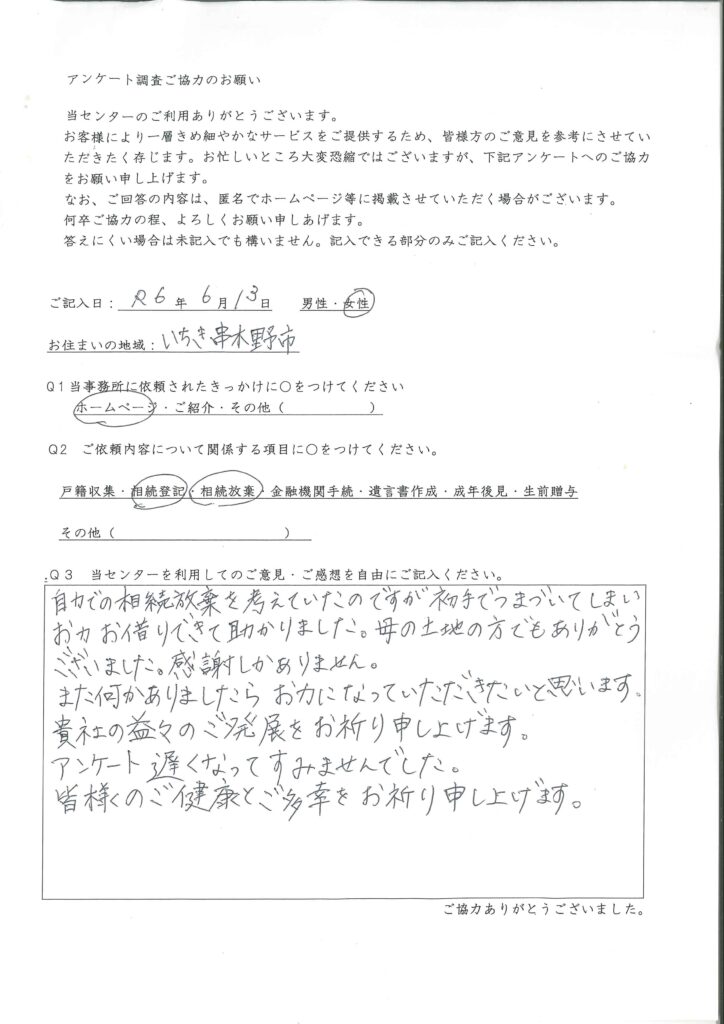 アンケート調査ご協力のお願い
当センターのご利用ありがとうございます。
お客様により一層きめ細やかなサービスをご提供するため、皆様方のご意見を参考にさせてい
ただきたく存じます。お忙しいところ大変恐縮ではございますが、下記アンケートへのご協力
をお願い申し上げます。
なお、ご回答の内容は、匿名でホームページ等に掲載させていただく場合がございます。
何卒ご協力の程、よろしくお願い申しあげます。
答えにくい場合は未記入でも構いません。記入できる部分のみご記入ください。
ご記入日： R6 年 6 月 13 日 男性・女性
お住まいの地域：いちき串木野市
Q1当事務所に依頼されたきっかけに○をつけてください
ホームページ・ご紹介・その他（ ）
Q2 ご依頼内容について関係する項目に○をつけてください。
戸籍収集・相続登記・相続放棄・金融機関手続・遺言書作成・成年後見・生前贈与
その他（ ）
.Q3 当センターを利用してのご意見・ご感想を自由にご記入ください。
自力での相続放棄を考えていたのですが初手でつまづいてしまい
お力お借りできて助かりました。母の土地の方でもありがとう
ございました。感謝しかありません。
また何かありましたらお力になっていただきたいと思います。
貴社の益々のご発展をお祈り申し上げます。
アンケート遅くなってすみませんでした。
皆様々のご健康とご多幸をお祈り申し上げます。
ご協力ありがとうございました。